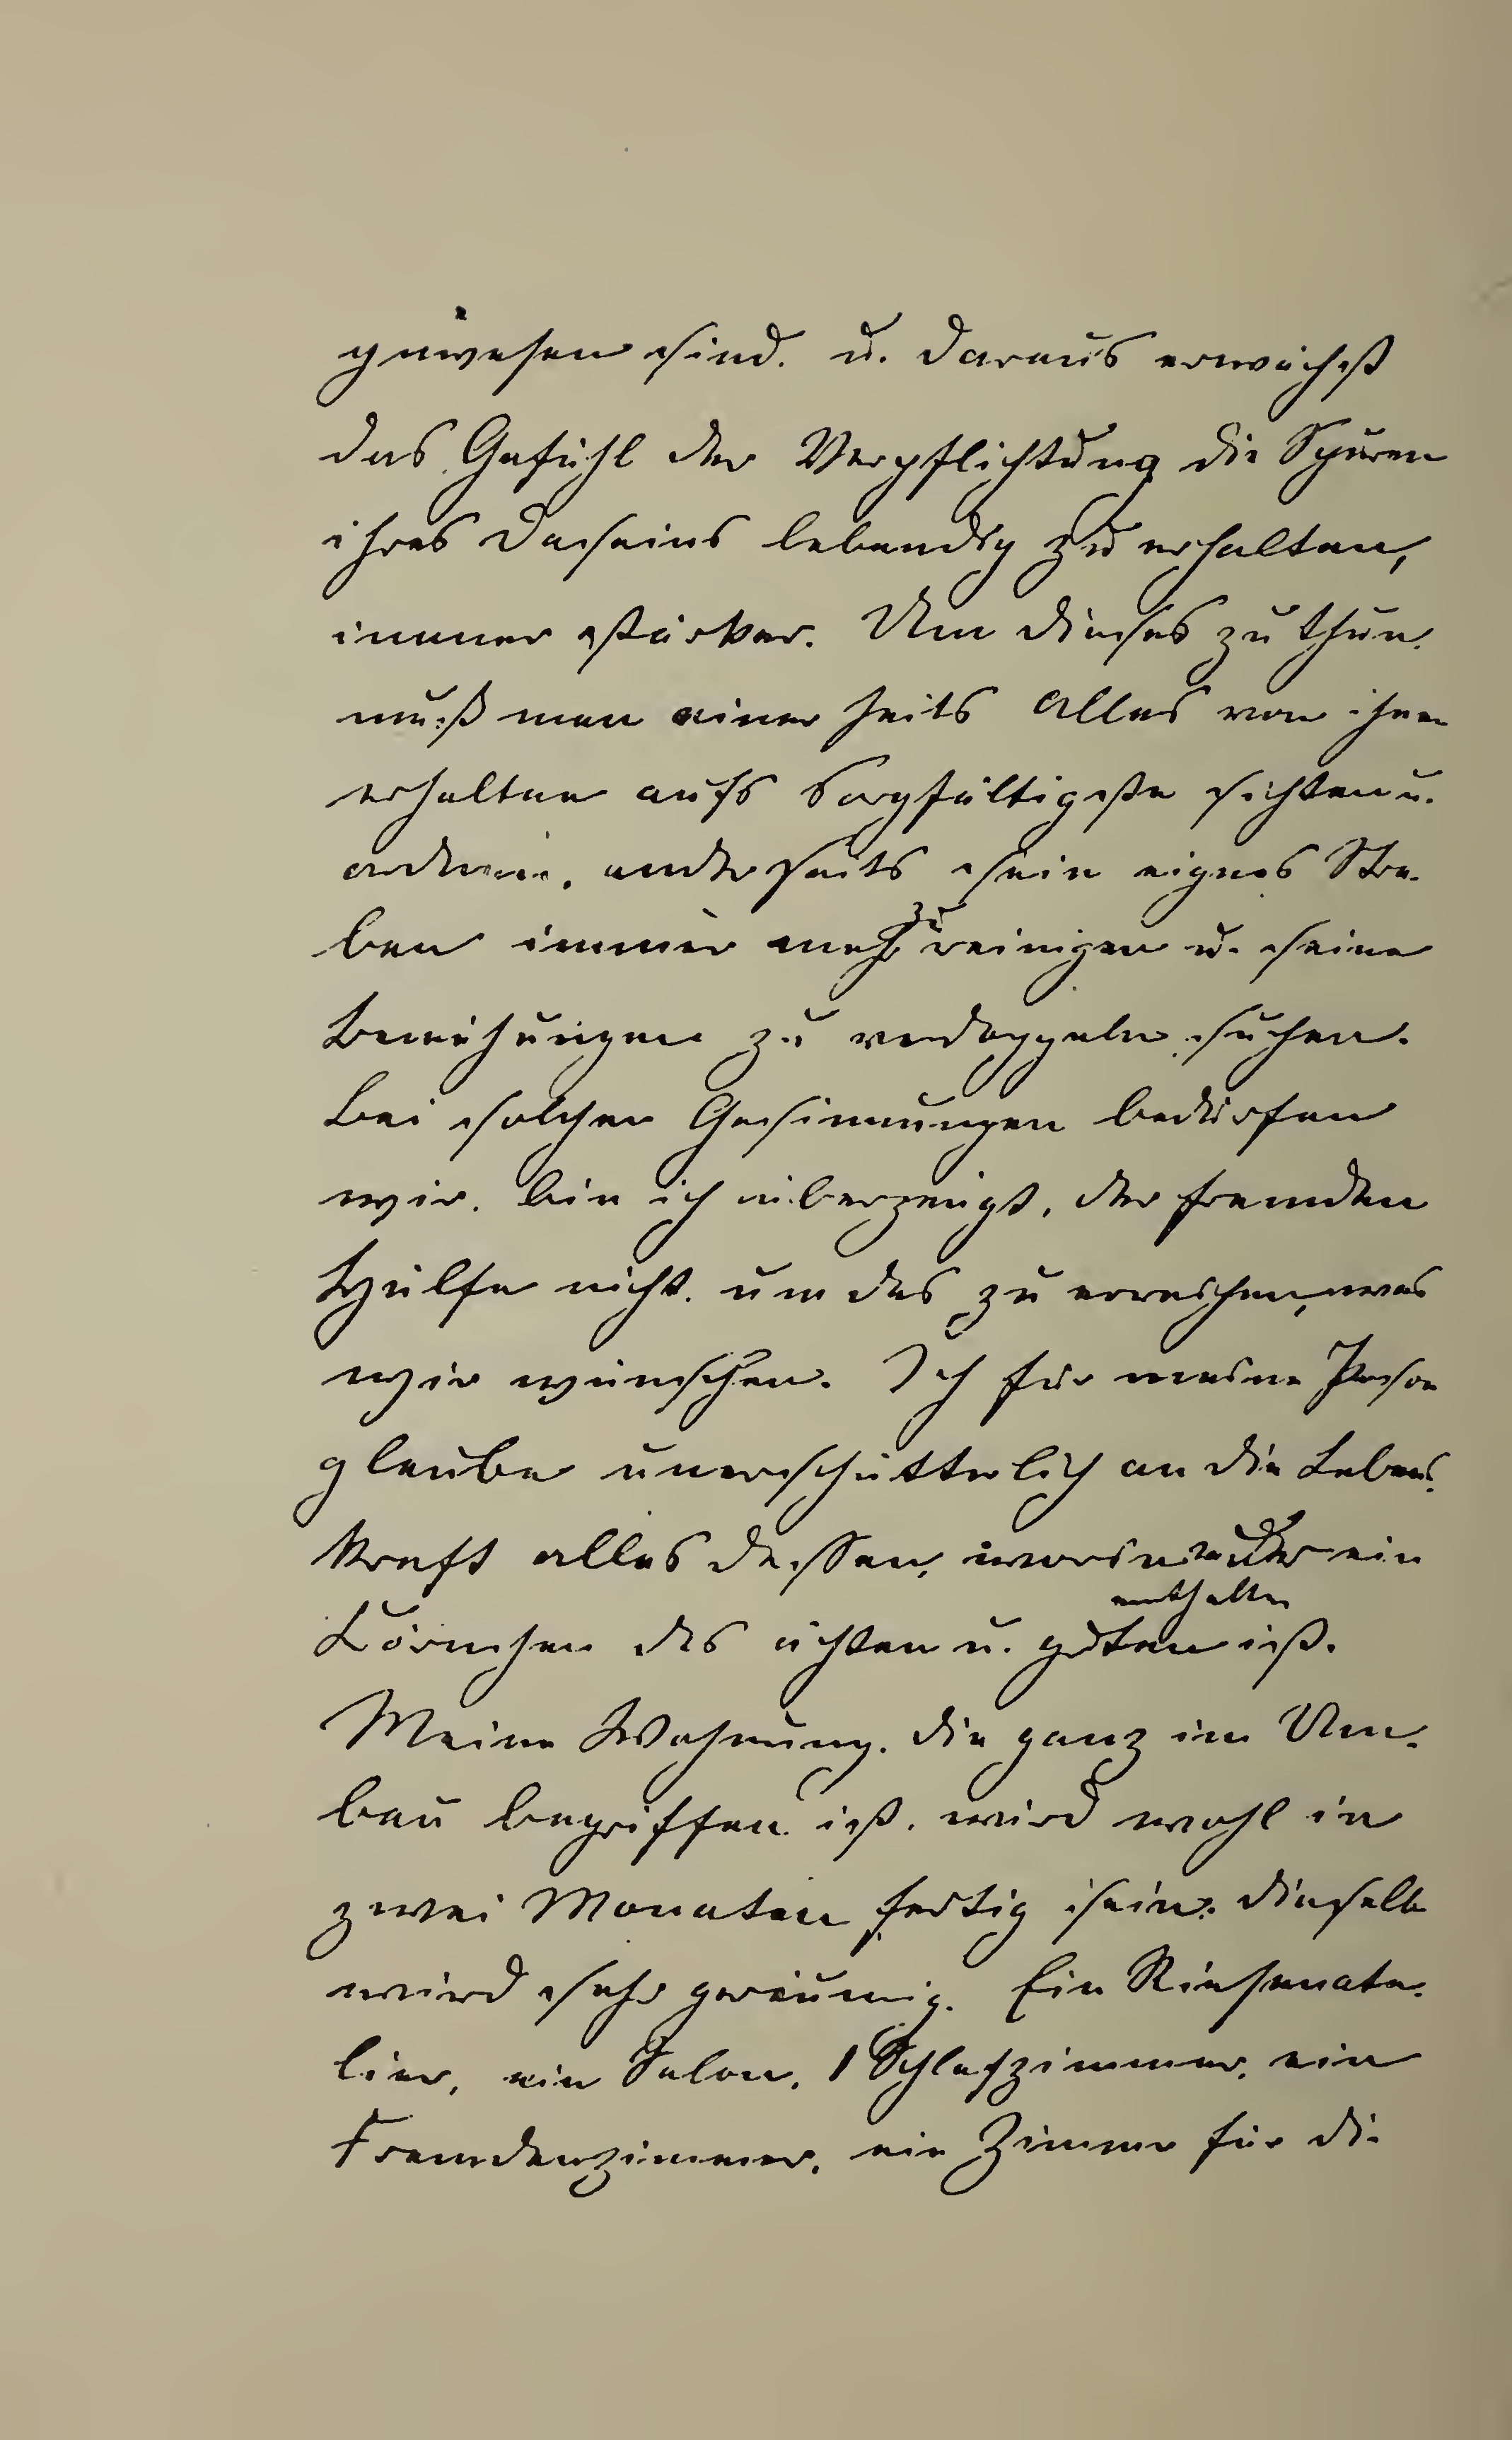 gewesen sind. u. daraus erwächst
das Gefühl der Verpflichtung die Spuren
ihres Daseins lebendig zu erhalten,
immer stärker. Um dieses zu thun.
muß man einer seits alles von ihnen
erhalten aufs sorgfältigste sichten u.
ordnen, anderseits sein eignes Stre-
ben immer mehr zu reinigen u. seine
Bemühungen zu verdoppeln suchen.
Bei solchen Gesinnungen bedürfen
wir. bin ich überzeugt, der fremden
Hülfe nicht. um das zu erreichen, was
wir wünschen. Ich für meine Person
glaube unerschütterlich an die Lebens-
kraft alles dessen, worin ein
Körnchen des ächten u. guten enthalten ist.
Meine Wohnung. die ganz im Um-
bau begriffen ist. wird wohl in
zwei Monaten fertig sein. dieselbe
wird sehr geräumig. Ein Riesenate-
lier, ein Salon, 1 Schlafzimmer, ein
Fremdenzimmer, ein Zimmer für die